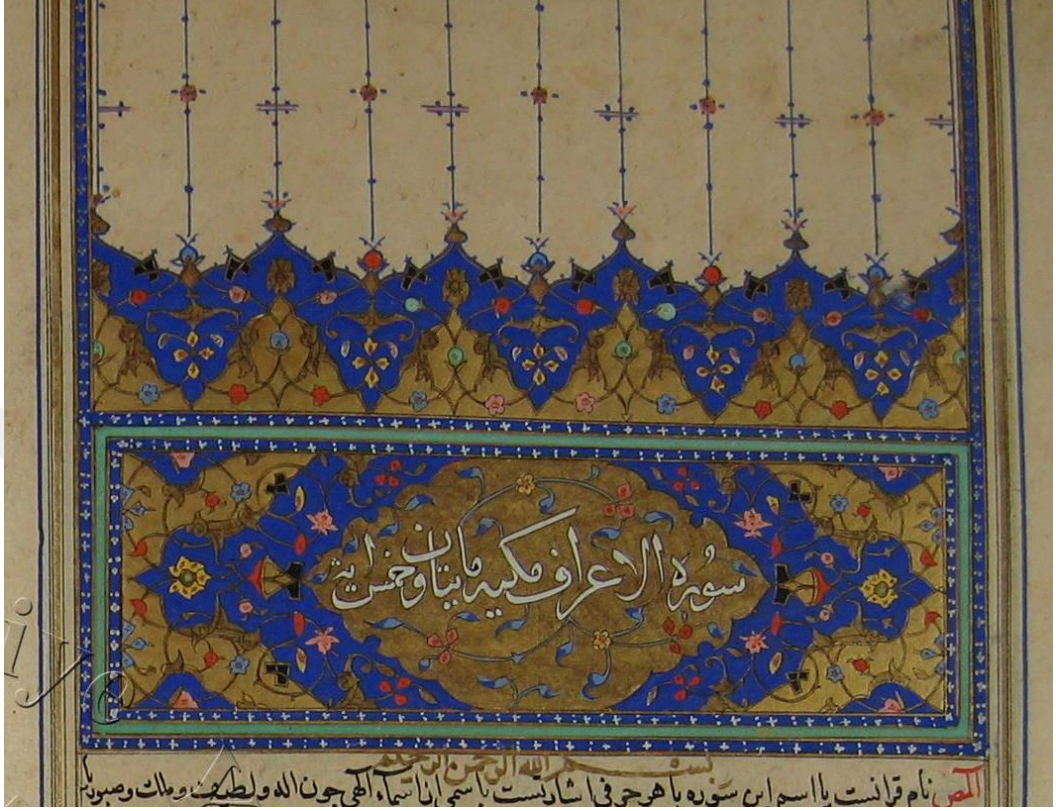 سوره الاعراف مكيه مايتان وخمس اية
بسم الله الرحمن الرحيم
المص نام قرانست يا اسم اين سوره يا هر حرفى اشارتست باسمى از اسماء الهى چون اله و لطيف و ملك و صبور يا
iye